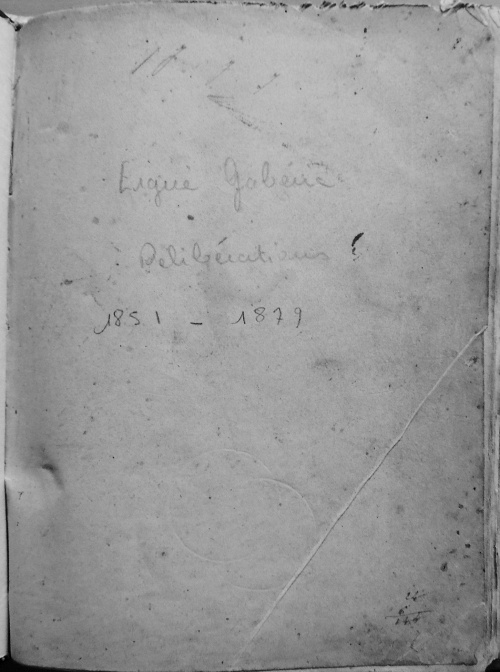 Ergué Gabéric
Délibérations
1851 - 1879